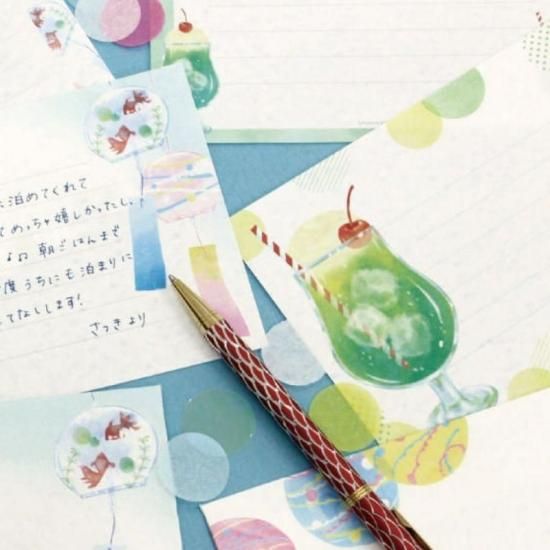 に泊めてくれて
てめっちゃ嬉しかったし、
よね 朝ごはんまで
度うちにも泊まりに
てなしします!
さつきより